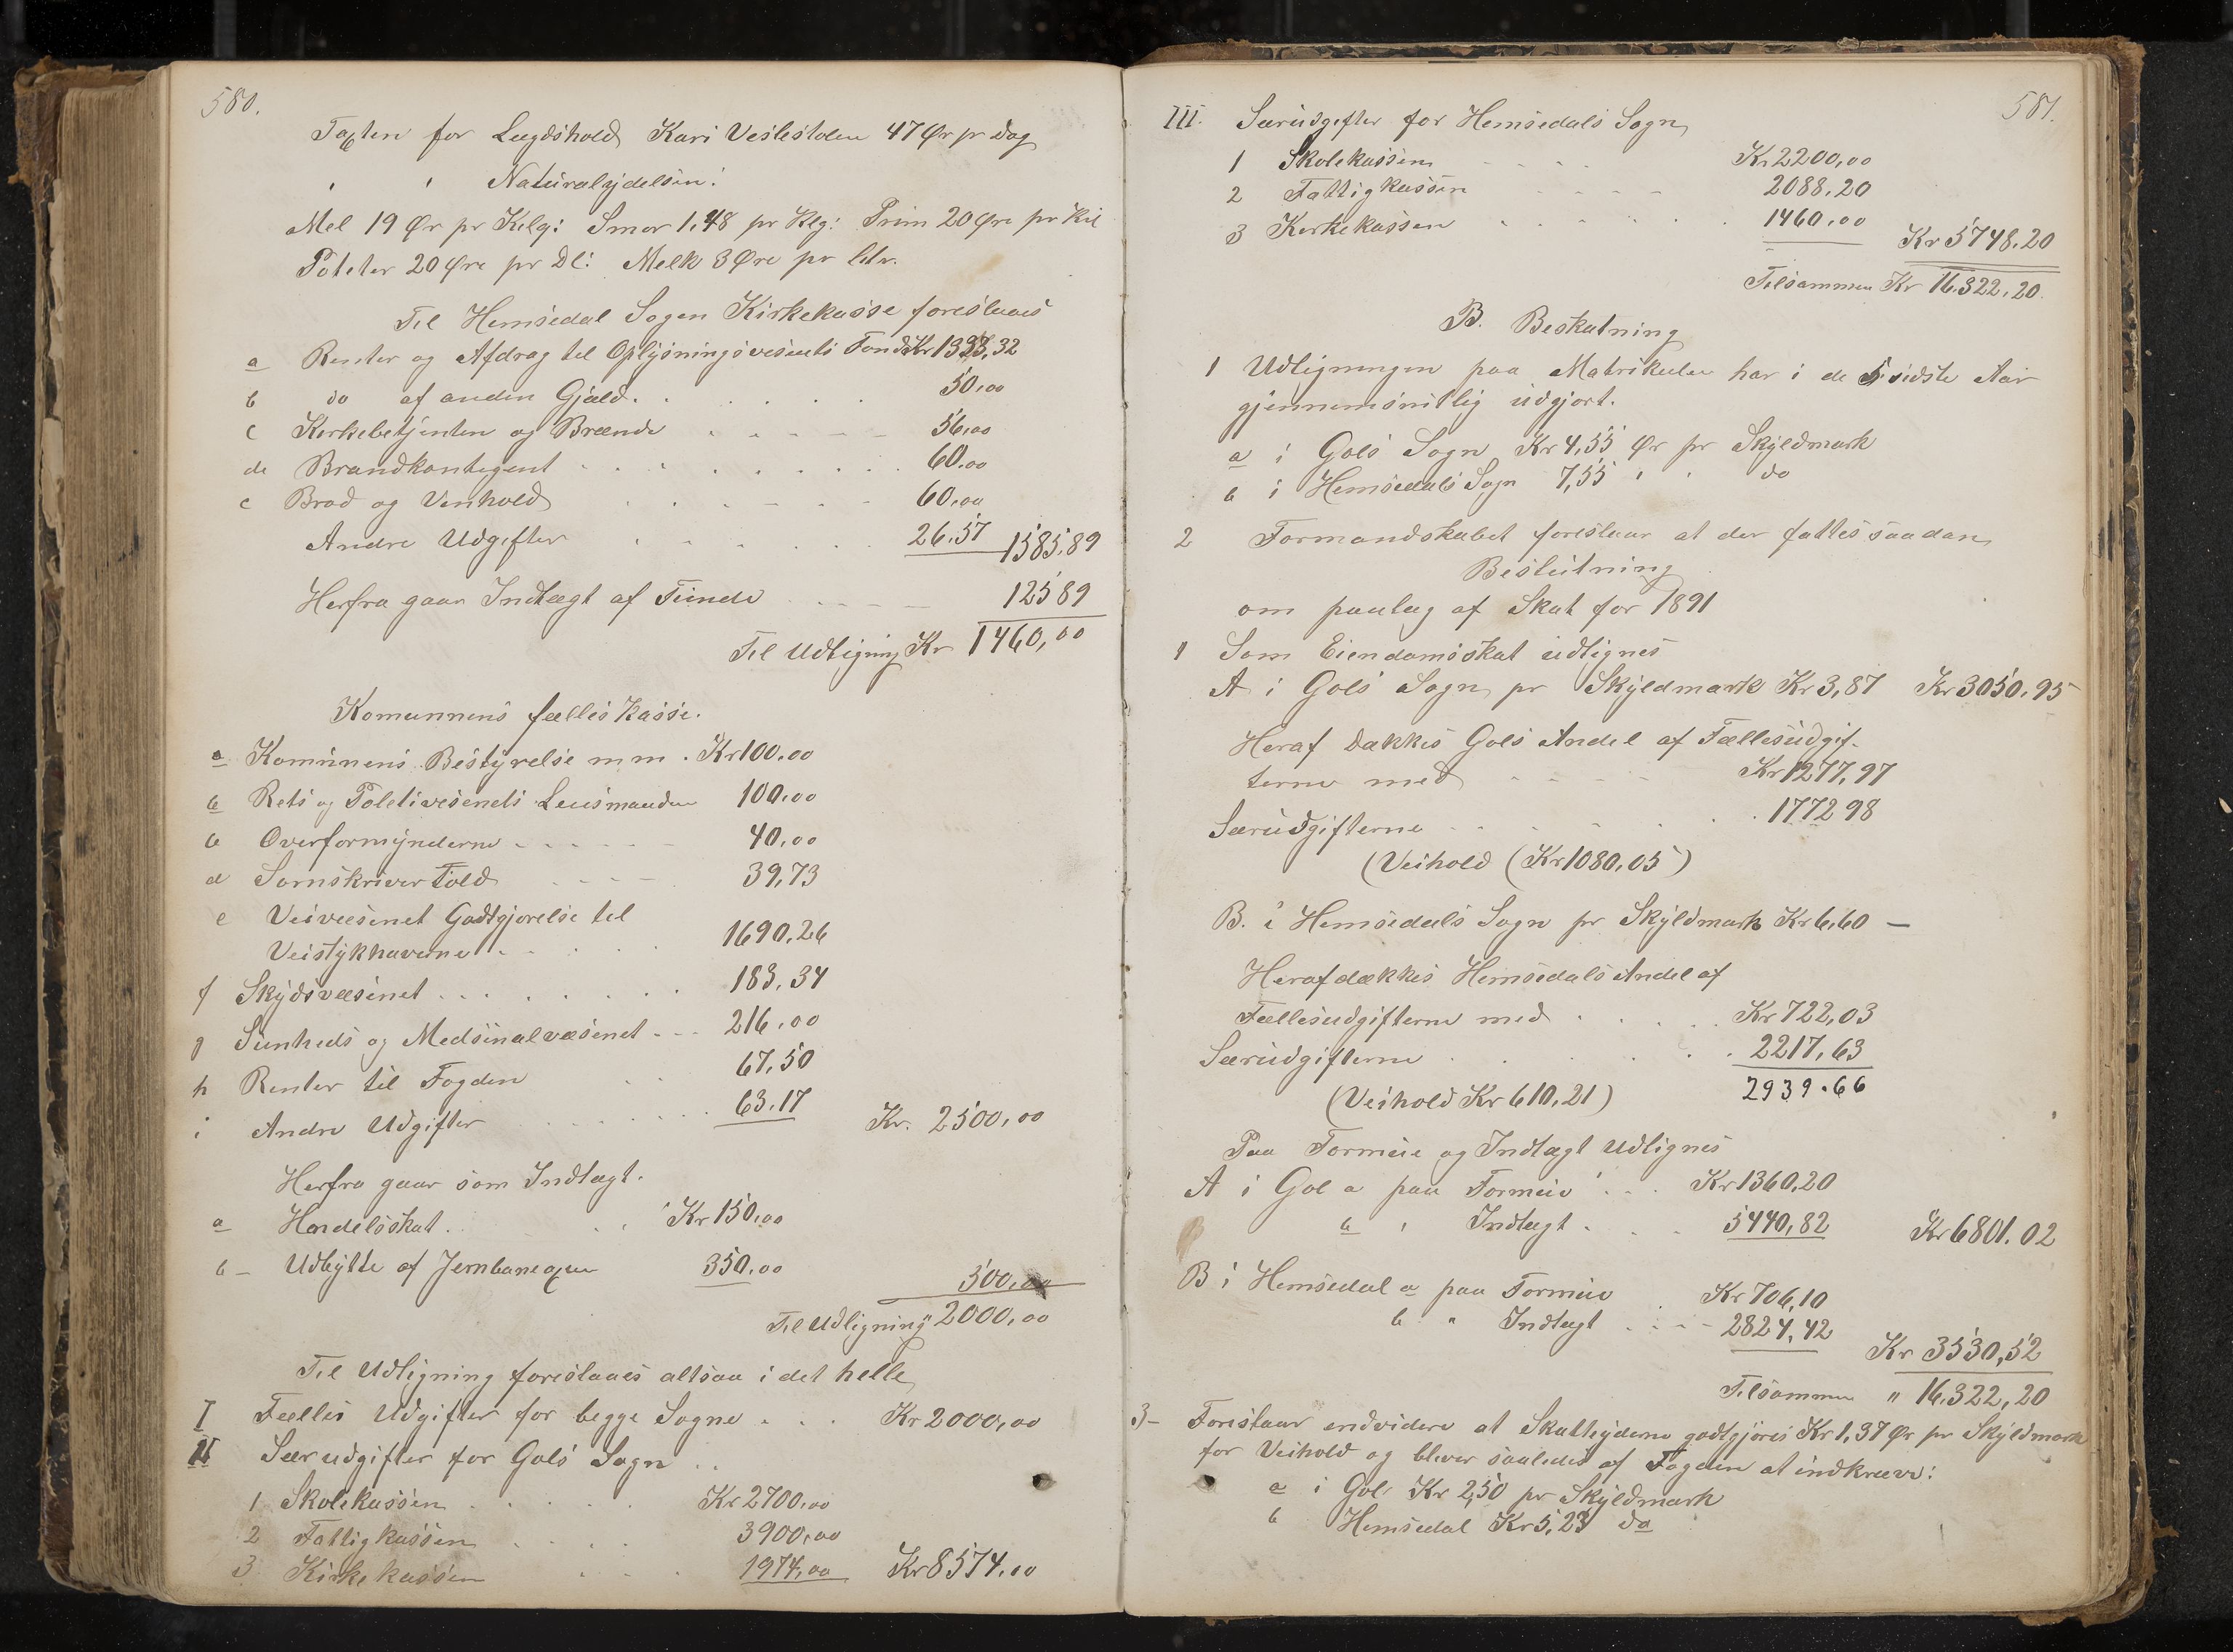 580.
Taxten for Lægdshold Kari Veslestølen 47 Ør pr Dag
" " Naturalydelsen:
Mel 19 Ør pr Kilg: Smør 1,48 pr Klg: Prim 20 Øre pr Kil
Poteter 20 Øre pr Dl: Melk 8 Øre pr liter.
Til Hemsedal Sogen Kirkekasse foreslaaes
a Renter og Afdrag til Oplysningsvesents Fond Kr 1333,32
b do af anden Gjæld . . . . . . 50,00
c Kirkebetjenten og Brænde . . . . . 56,00
de Brandkontigent . . . . . . . . 60,00
e Brød og Vinhold . . . . . . 60,00
Andre Udgifter . . . . . . 26.57 1585,89
Herfra gaar Indtægt af Tiende . . . . 12589
Til Udligning Kr 1460,00
Komunnens fælles Kasse.
a Komunens Bestyrelse m m . Kr 100,00
b Rets og Politivesenets Lensmanden 100,00
b Overformynderne . . . . . 40,00
d Sornskriver Told . . . . 39,73
e Veivæsenet Godtgjørelse til
Veistykhaverne . . . . . 1690,26
f Skydsvæsenet . . . . . . . 183,34
g Sunheds og Medsinalvæsenet . . . 216,00
h Renter til Fogden . . 67,50
i Andre Udgifter . . . . . . 63.17 Kr. 2500,00
Herfra gaar som Indtægt.
a Handelsskat . . . Kr 150,00
b - Udbytte af Jernbaneaxier 350,00 500,00
Til Udligning " 2000,00
Til Udligning foreslaaes altsaa i det helle
I Fælles Udgifter for begge Sogne . . . Kr 2000,00
II Særudgifter for Gols Sogn . .
1 Skolekassen . . . . . Kr 2700,00
2 Fattigkassen . . . . 3900,00
3 Kirkekassen . . . 1974,00 Kr 8574,00
581.
III. Særudgifter for Hemsedals Sogn
1 Skolekassen . . . . Kr 2200,00
2 Fattigkassen . . . . . 2088.20
3 Kirkekassen . . . . . . 1460,00 Kr 5748.20
Tilsammen Kr 16.322,20
B. Beskatning
1 Udligningen paa Matrikulen har i de 5 sidste Aar
gjennemsnitlig udgjort.
a i Gols Sogn Kr 4,55 Ør pr Skyldmark
b i Hemsedals Sogn 7,55 " " do
2 Formandskabet foreslaar at der fattes saadan
Beslutning
om paalæg af Skat for 1891
1 Som Eiendomsskat udlignes
A i Gols Sogn pr Skyldmark Kr 3,87 Kr 3050,95
Heraf dækkes Gols Andel af Fællesudgif-
terne med . . . . Kr 1277,97
Særudgifterne . . . . . . 1772 98
(Veihold (Kr 1080,05)
B. i Hemsedals Sogn pr Skyldmark Kr 6,60 —
Heraf dækkes Hemsedals Andel af
Fællesudgifterne med . . . . Kr 722,03
Særudgifterne . . . . . . 2217,63
(Veihold Kr 610,21) 2939.66
Paa Formue og Indtægt Udlignes
A i Gol a paa Formue . . . Kr 1360,20
b " Indtægt . . . 5440,82 Kr 6801.02
B i Hemsedal a paa Formue . Kr 706,10
b " Indtægt . . . . 2824,42 Kr 3530,52
Tilsammen " 16.322,20
3- Foreslaar endvidere at Skatteyderne godtgjøres Kr 1,37 Ør pr Skyldmark
for Veihold og bliver saaledes af Fogden at indkræve:
a i Gol Kr 2,50 pr Skyldmark
b Hemsedal Kr 5,23 do